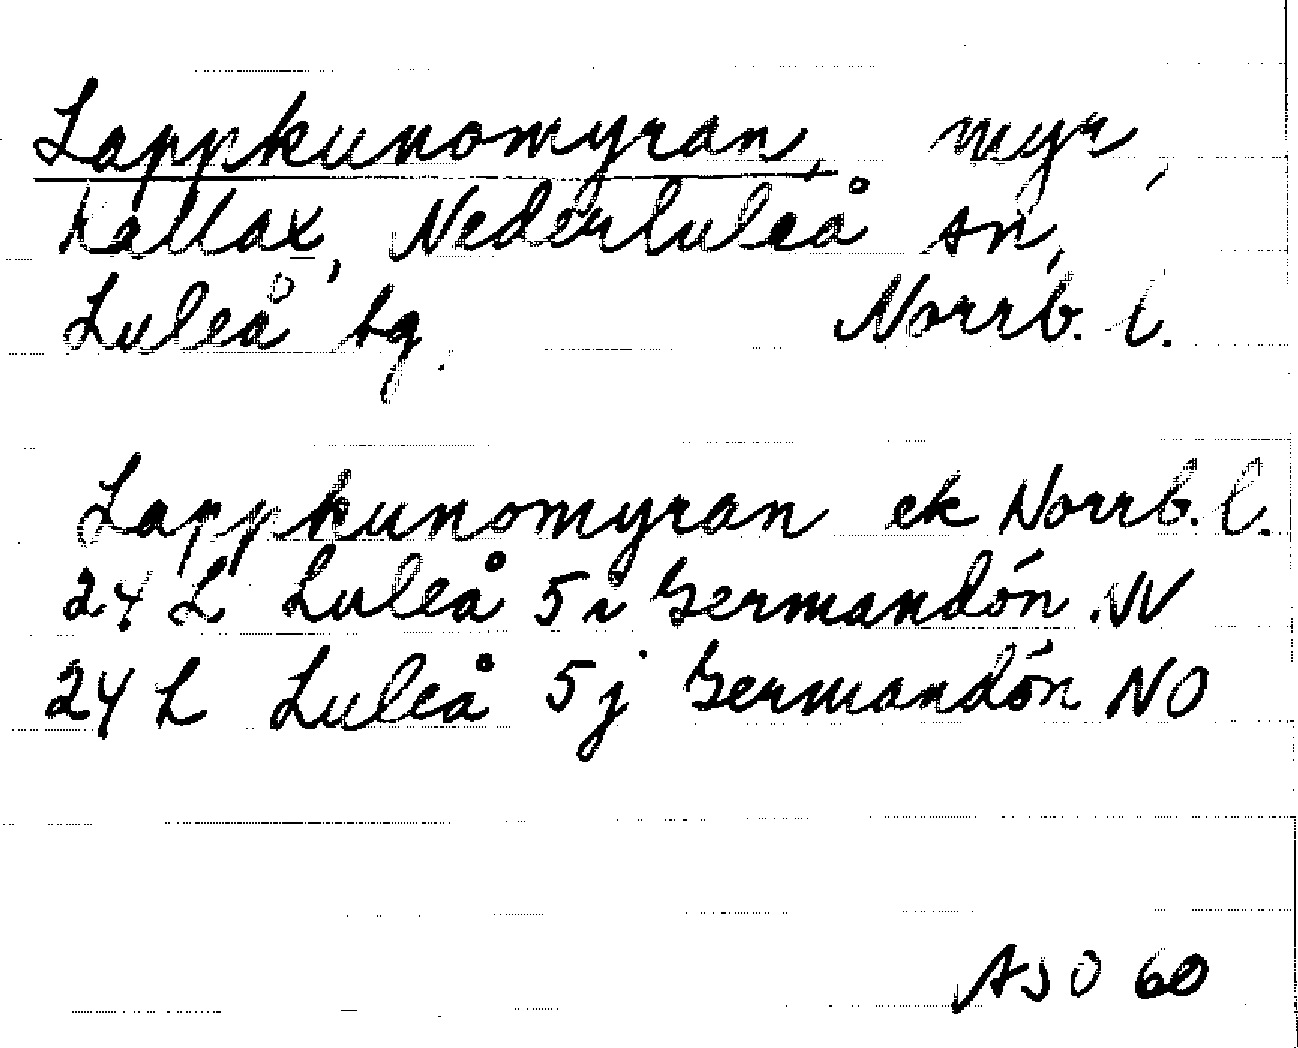 Lappkunomyran, myr,
Kallax, Nederluleå sn,
Luleå tg. Norrb. l.
Lappkunomyran ek Norrb. l.
24 L Luleå 5i Germandön NV
24 L Luleå 5j Germandön NO
ASO 60